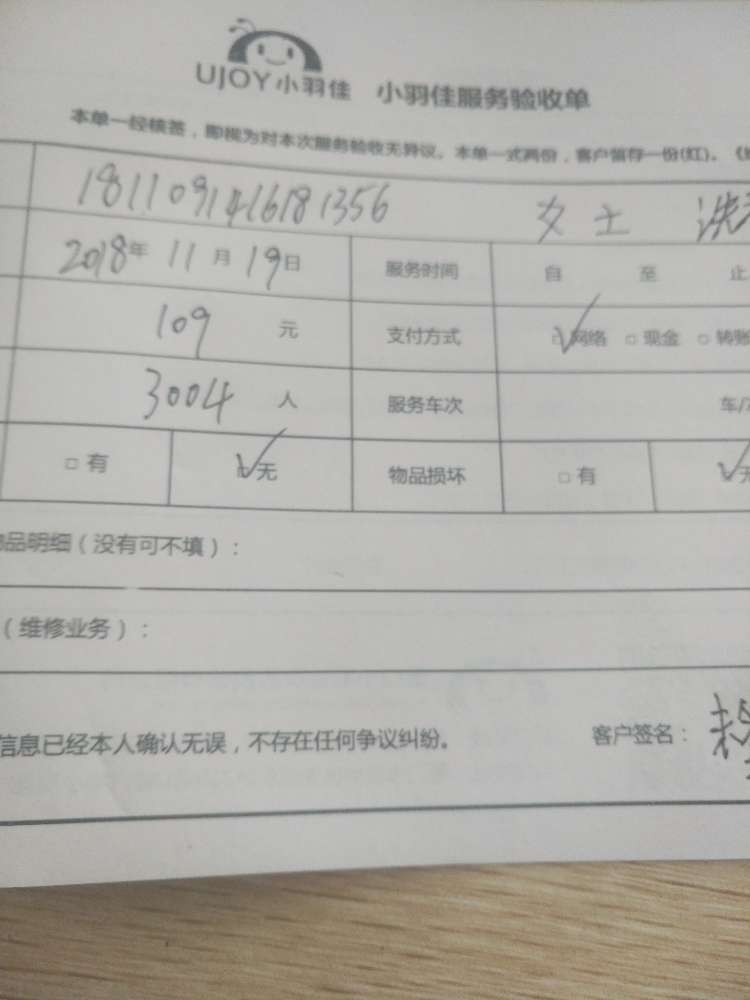 UJOY小羽佳 小羽佳服务验收单
本单一经核签，即视为对本次服务验收无异议。本单一式两份，客户留存一份(红)。
1811091416181356 女士 洗
2018年11月19日 服务时间 自 至 止
109 元 支付方式 ☑网络 □现金 □转账
3004 人 服务车次 车/
□有 ☑无 物品损坏 □有 ☑无
品明细（没有可不填）：
（维修业务）：
信息已经本人确认无误，不存在任何争议纠纷。 客户签名：